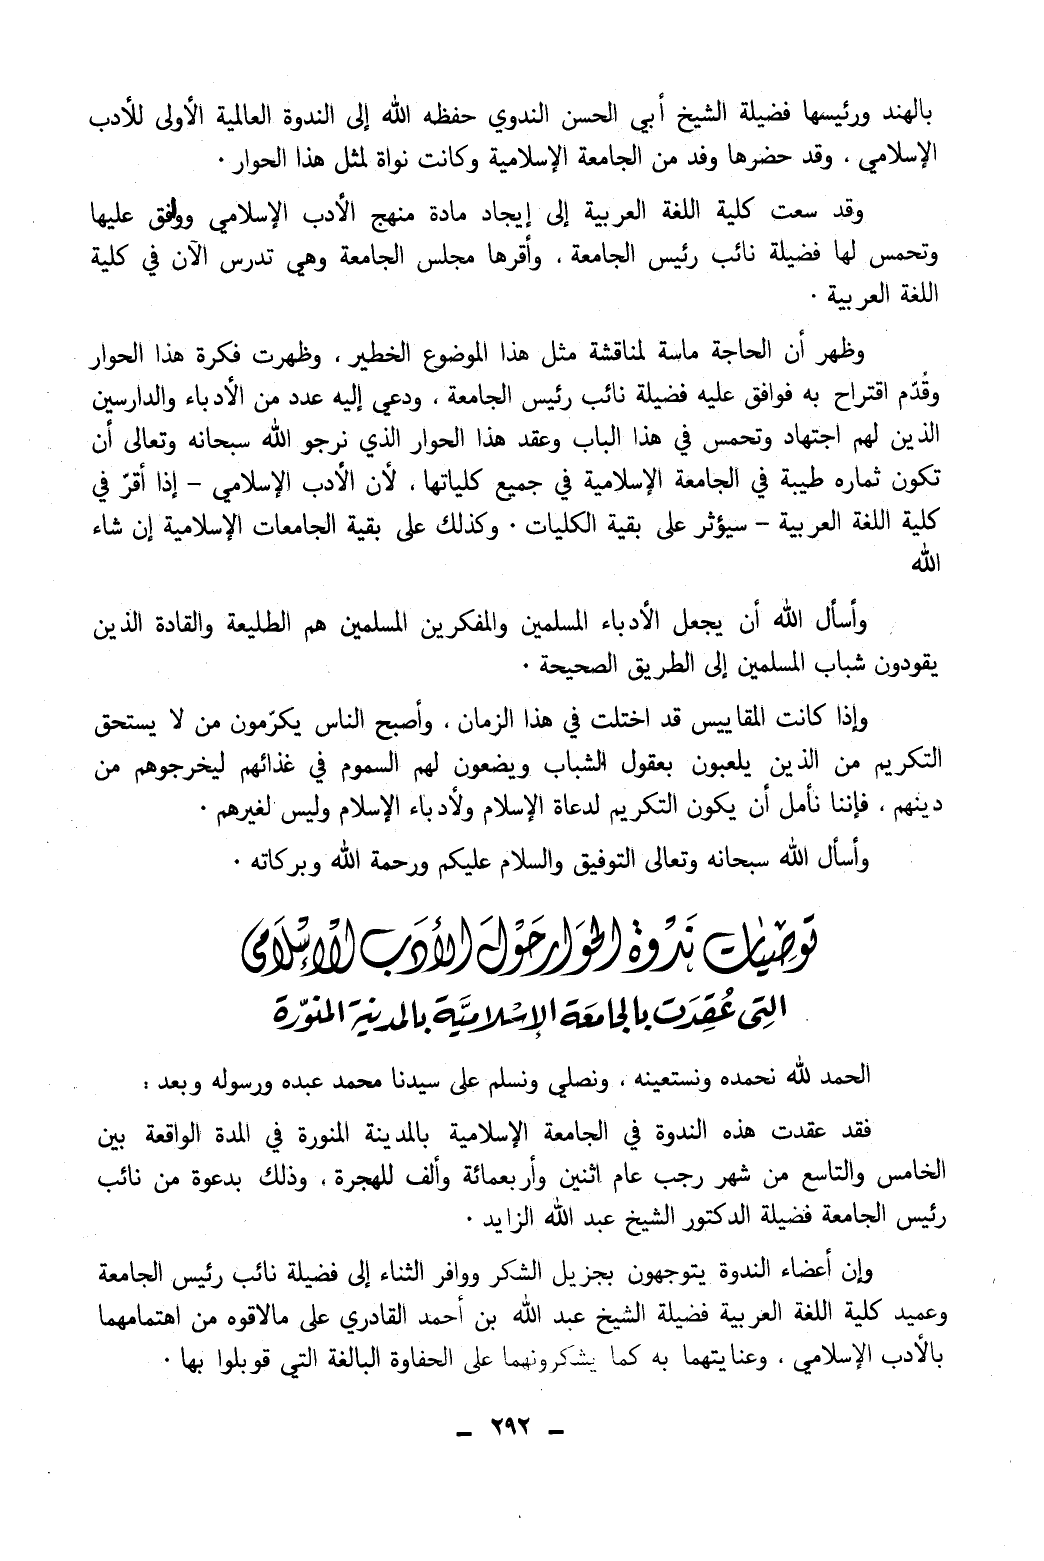 بالهند ورئيسها فضيلة الشيخ أبي الحسن الندوي حفظه الله إلى الندوة العالمية الأولى للأدب
الإسلامي ، وقد حضرها وفد من الجامعة الإسلامية وكانت نواة لمثل هذا الحوار ٠
وقد سعت كلية اللغة العربية إلى إيجاد مادة منهج الأدب الإسلامي ووافق عليها
وتحمس لها فضيلة نائب رئيس الجامعة ، وأقرها مجلس الجامعة وهي تدرس الآن في كلية
اللغة العربية ٠
وظهر أن الحاجة ماسة لمناقشة مثل هذا الموضوع الخطير ، وظهرت فكرة هذا الحوار
وقُدّم اقتراح به فوافق عليه فضيلة نائب رئيس الجامعة ، ودعي إليه عدد من الأدباء والدارسين
الذين لهم اجتهاد وتحمس في هذا الباب وعقد هذا الحوار الذي نرجو الله سبحانه وتعالى أن
تكون ثماره طيبة في الجامعة الإسلامية في جميع كلياتها ، لأن الأدب الإسلامي – إذا أقرّ في
كلية اللغة العربية – سيؤثر على بقية الكليات ٠ وكذلك على بقية الجامعات الإسلامية إن شاء
الله
وأسأل الله أن يجعل الأدباء المسلمين والمفكرين المسلمين هم الطليعة والقادة الذين
يقودون شباب المسلمين إلى الطريق الصحيحة ٠
وإذا كانت المقاييس قد اختلت في هذا الزمان ، وأصبح الناس يكرّمون من لا يستحق
التكريم من الذين يلعبون بعقول الشباب ويضعون لهم السموم في غذائهم ليخرجوهم من
دينهم ، فإننا نأمل أن يكون التكريم لدعاة الإسلام ولأدباء الإسلام وليس لغيرهم ٠
وأسأل الله سبحانه وتعالى التوفيق والسلام عليكم ورحمة الله وبركاته ٠
توصيات ندوة الحوار حول الأدب الإسلامي
التي عُقِدَت بالجامعة الإسلاميَّة بالمدينة المنوّرة
الحمد لله نحمده ونستعينه ، ونصلي ونسلم على سيدنا محمد عبده ورسوله وبعد :
فقد عقدت هذه الندوة في الجامعة الإسلامية بالمدينة المنورة في المدة الواقعة بين
الخامس والتاسع من شهر رجب عام اثنين وأربعمائة وألف للهجرة ، وذلك بدعوة من نائب
رئيس الجامعة فضيلة الدكتور الشيخ عبد الله الزايد ٠
وإن أعضاء الندوة يتوجهون بجزيل الشكر ووافر الثناء إلى فضيلة نائب رئيس الجامعة
وعميد كلية اللغة العربية فضيلة الشيخ عبد الله بن أحمد القادري على مالاقوه من اهتمامهما
بالأدب الإسلامي ، وعنايتهما به كما يشكرونهما على الحفاوة البالغة التي قوبلوا بها ٠
– ٢٩٢ –